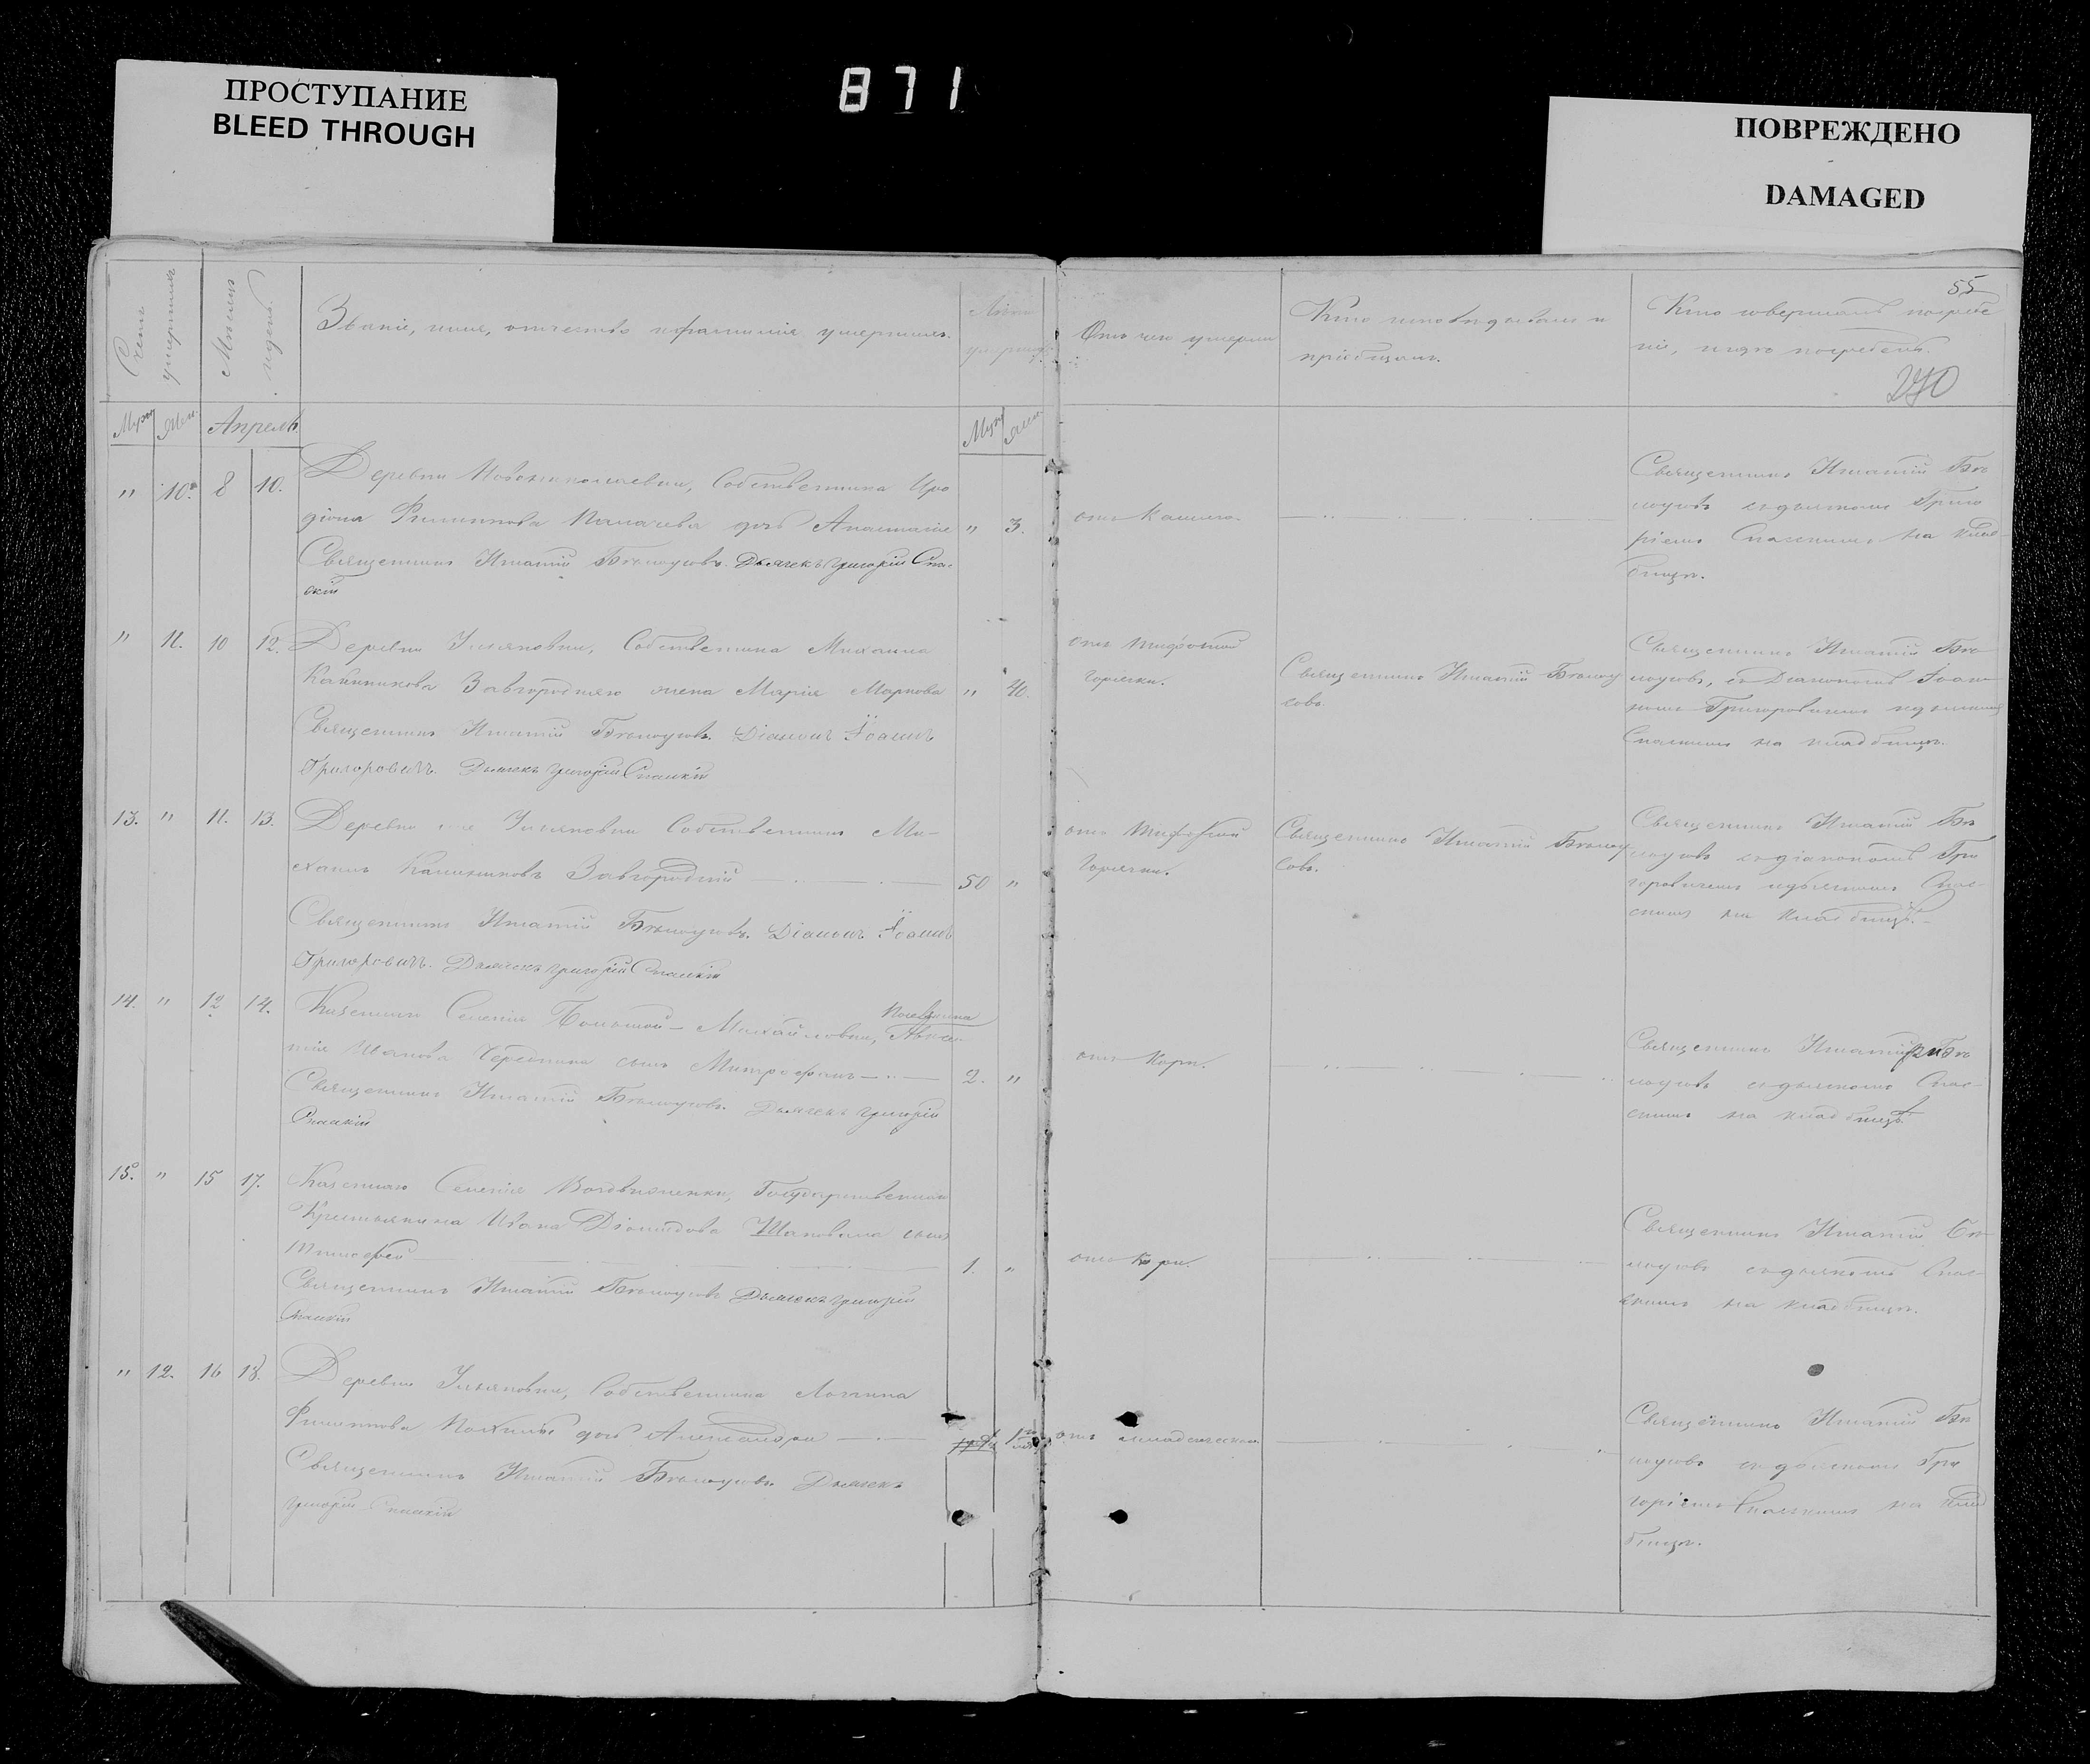 ПРОСТУПАНИЕ
BLEED THROUGH
871
ПОВРЕЖДЕНО
DAMAGED
55
Счетъ умершихъ
Мѣсяцъ и день.
Званіе, имя, отчество и фамилія умершихъ.
Лѣта
Отъ чего умеръ
Кто исповѣдывалъ и
пріобщалъ.
Кто совершалъ погребе
ніе, и гдѣ погребены.
Муж. Жен. Апрель
Муж. Жен.
" 10. 8 10.
Деревни Собственника Иро
діона Филиппова дочь Анастасія " 3.
Священникъ Игнатій Бѣлоусовъ. Дьячекъ Григорій Спа-
скій
отъ Кашлю.
Священникъ Игнатій Бѣ
лоусовъ съ дьячкомъ Григо
ріемъ Спасскимъ на клад-
бищѣ.
" 11. 10 12.
Деревни Ульяновки, Собственника Михаила
Калиникова Завгородняго жена Марія Маркова " 40.
Священникъ Игнатій Бѣлоусовъ. Діаконъ Іоаннъ
Григоровичъ. Дьячекъ Григорій Спаскій
отъ тифозной
горячки.
Священникъ Игнатій Бѣлоу
совъ.
Священникъ Игнатій Бѣ
лоусовъ, съ Діакономъ Іоан
номъ Григоровичемъ и дьячкомъ
Спасскимъ на кладбищѣ.
13. " 11. 13.
Деревни Ульяновки Собственникъ Ми-
хаилъ Калиниковъ Завгородній 50 "
Священникъ Игнатій Бѣлоусовъ. Діаконъ Іоаннъ
Григоровичъ. Дьячекъ Григорій Спаскій
отъ Тифозной
Горячки.
Священникъ Игнатій Бѣлоу
совъ.
Священникъ Игнатій Бѣ
лоусовъ съ діакономъ Гри
горовичемъ и дьячкомъ Спас-
скимъ на кладбищѣ.
14. " 12 14.
Казеннаго Селенія Большой-Михайловки,
Иванова сынъ Митрофанъ 2. "
Священникъ Игнатій Бѣлоусовъ. Дьячекъ Григорій
Спаскій
отъ Кори.
Священникъ Игнатій Бѣ
лоусовъ съ дьячкомъ Спас-
скимъ на кладбищѣ.
15. " 15 17.
Казеннаго Селенія Воздвиженки, Государственнаго
Крестьянина Ивана Діомидова Шаповала сынъ
Тимофей 1. "
Священникъ Игнатій Бѣлоусовъ Дьячекъ Григорій
Спаскій
отъ Кори.
Священникъ Игнатій Бѣ
лоусовъ съ дьячкомъ Спас-
скимъ на кладбищѣ.
" 12. 16 18.
Деревни Ульяновки, Собственника Логгина
Филиппова дочь Александра
Священникъ Игнатій Бѣлоусовъ. Дьячекъ
Григорій Спаскій
отъ младенческой
Священникъ Игнатій Бѣ
лоусовъ съ дьячкомъ Гри
горіемъ Спасскимъ на клад
бищѣ.